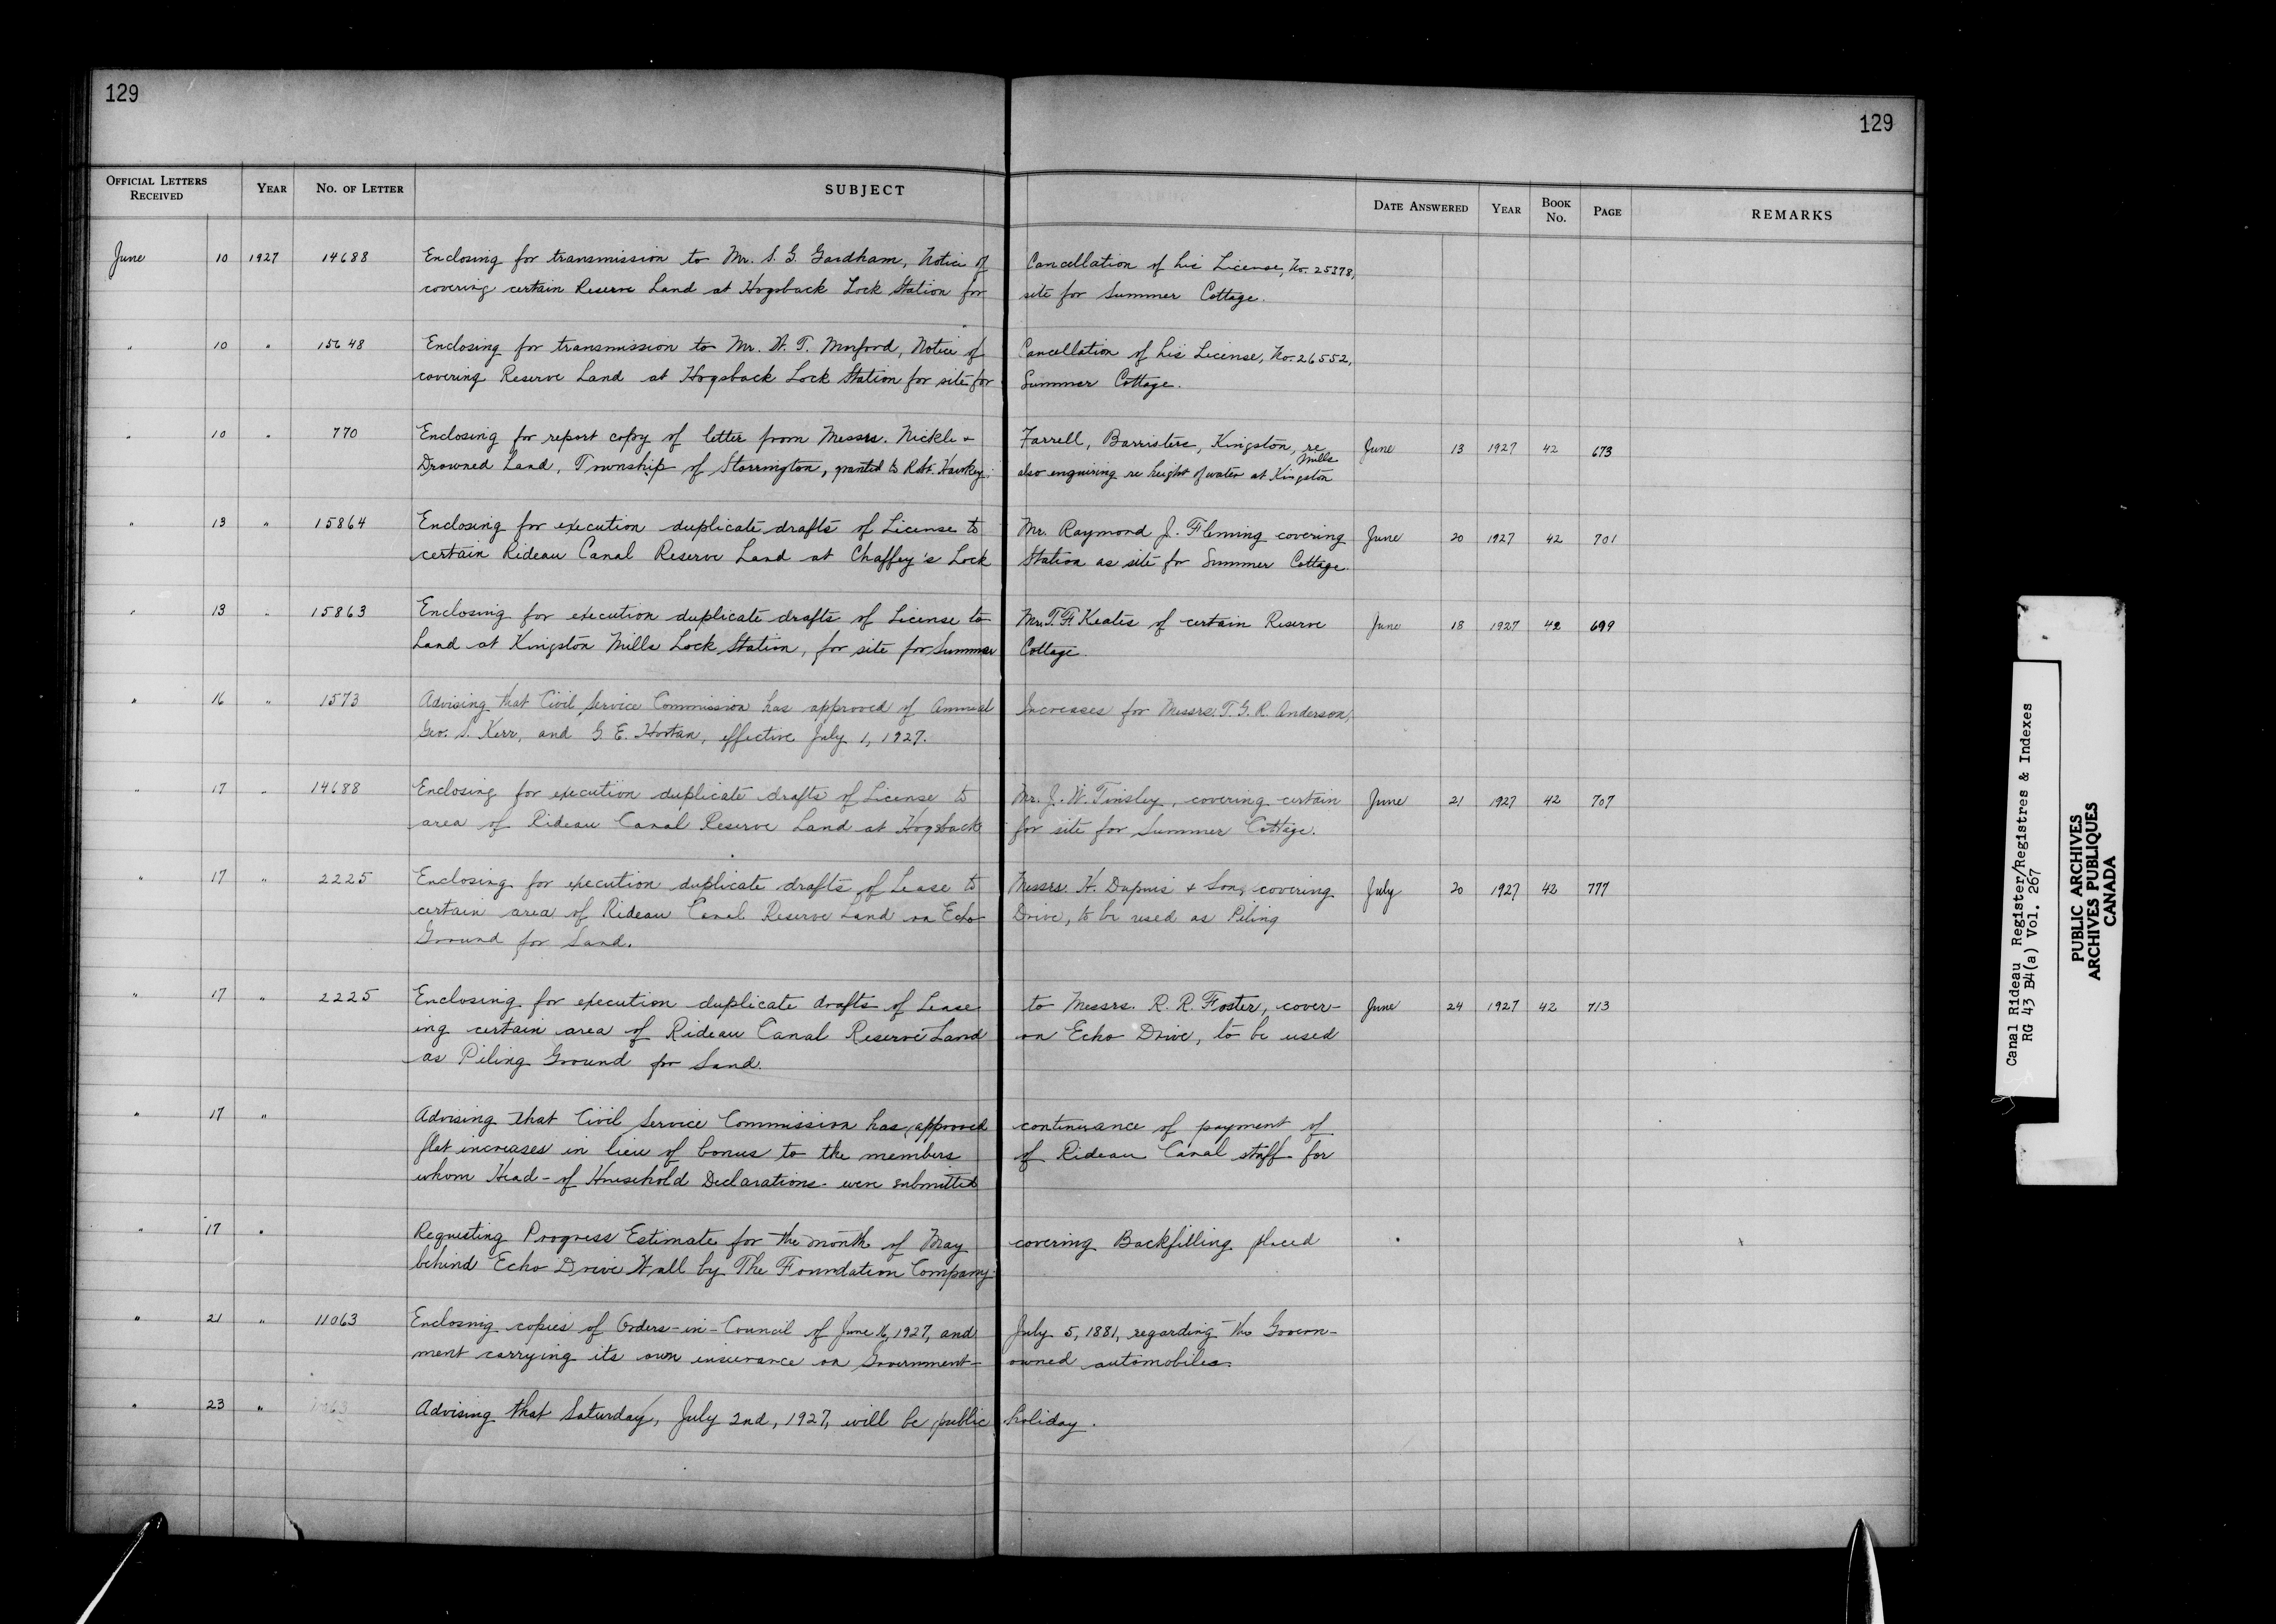 129
129
OFFICIAL LETTERS RECEIVED YEAR No. OF LETTER SUBJECT DATE ANSWERED YEAR BOOK No. PAGE REMARKS
June 10 1927 14688 Enclosing for transmission to Mr. S. G. Gardham, Notice of Cancellation of his License, No. 25378,
covering certain Reserve Land at Hogsback Lock Station for site for Summer Cottage.
" 10 " 15648 Enclosing for transmission to Mr. W. T. Morford, Notice of Cancellation of his License, No. 26552,
covering Reserve Land at Hogsback Lock Station for site for Summer Cottage.
" 10 " 770 Enclosing for report copy of letter from Messrs. Nickle & Farrell, Barristers, Kingston, re June 13 1927 42 673
Drowned Land, Township of Storrington, granted to Robt. Hawkey; also enquiring re height of water at Kingston Mills
" 13 " 15864 Enclosing for execution duplicate drafts of License to Mr. Raymond J. Fleming covering June 20 1927 42 701
certain Rideau Canal Reserve Land at Chaffey's Lock Station as site for Summer Cottage.
" 13 " 15863 Enclosing for execution duplicate drafts of License to Mr. T. F. Keates of certain Reserve June 18 1927 42 699
Land at Kingston Mills Lock Station, for site for Summer Cottage.
" 16 " 1573 Advising that Civil Service Commission has approved of Annual Increases for Messrs. T. G. R. Anderson,
Geo. S. Kerr, and G. E. Hortan, effective July 1, 1927.
" 17 " 14688 Enclosing for execution duplicate drafts of License to Mr. J. W. Tinsley, covering certain June 21 1927 42 707
area of Rideau Canal Reserve Land at Hogsback for site for Summer Cottage.
" 17 " 2225 Enclosing for execution duplicate drafts of Lease to Messrs. H. Dupuis & Son, covering July 20 1927 42 777
certain area of Rideau Canal Reserve Land on Echo Drive, to be used as Piling
Ground for Sand.
" 17 " 2225 Enclosing for execution duplicate drafts of Lease to Messrs. R. R. Foster, cover- June 24 1927 42 713
ing certain area of Rideau Canal Reserve Land on Echo Drive, to be used
as Piling Ground for Sand.
" 17 " Advising that Civil Service Commission has approved continuance of payment of
flat increases in lieu of bonus to the members of Rideau Canal staff for
whom Head-of Household Declarations were submitted
" 17 " Requesting Progress Estimate for the month of May covering Backfilling placed
behind Echo Drive Wall by The Foundation Company.
" 21 " 11063 Enclosing copies of Orders-in-Council of June 16, 1927, and July 5, 1881, regarding the Govern-
ment carrying its own insurance on Government- owned automobiles.
" 23 " Advising that Saturday, July 2nd, 1927, will be public holiday.
Canal Rideau Register/Registres & Indexes
RG 43 B4(a) Vol. 267
PUBLIC ARCHIVES
ARCHIVES PUBLIQUES
CANADA